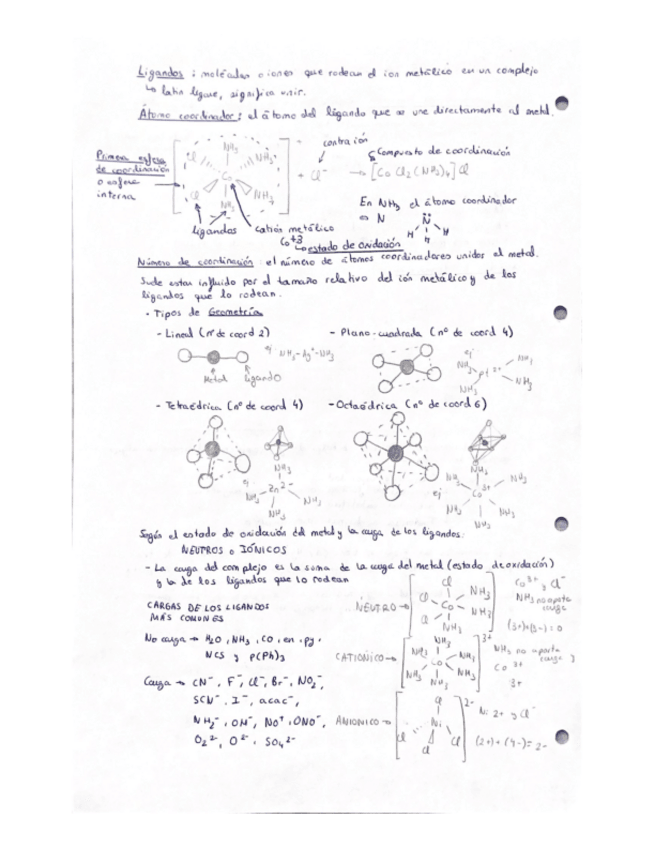 Ligandos : moléculas o iones que rodean el ion metálico en un complejo
↳ latin ligare, significa unir.
Átomo coordinador : el átomo del ligando que se une directamente al metal.
Primera esfera
de coordinación
o esfera
interna
NH3
Cl
NH3
Co
Cl
NH3
NH3
ligandos
catión metálico
Co+3
↳ estado de oxidación
contra ión
+ Cl-
Compuesto de coordinación
→ [Co Cl2 (NH3)4] Cl
En NH3 el átomo coordinador
es N
N
H
H
H
Número de coordinación : el número de átomos coordinadores unidos al metal.
Suele estar influido por el tamaño relativo del ión metálico y de los
ligandos que lo rodean.
• Tipos de Geometría
- Lineal (nº de coord 2)
ej: NH3-Ag+-NH3
Metal
ligando
- Plano-cuadrada (nº de coord 4)
ej
NH3
NH3
Pt 2+
NH3
NH3
- Tetraédrica (nº de coord 4)
ej
NH3
Zn
NH3
NH3
NH3
- Octaédrica (nº de coord 6)
ej
NH3
NH3
NH3
Co3+
NH3
NH3
NH3
Según el estado de oxidación del metal y la carga de los ligandos:
NEUTROS o IÓNICOS
- La carga del complejo es la suma de la carga del metal (estado de oxidación)
y la de los ligandos que lo rodean
CARGAS DE LOS LIGANDOS
MÁS COMUNES
No carga → H2O, NH3, CO, en, py,
NCS y P(Ph)3
Carga → CN-, F-, Cl-, Br-, NO2-,
SCN-, I-, acac-,
NH2-, OH-, NO+, ONO-,
O2 2-, O2-, SO4 2-
NEUTRO →
Cl
Cl
NH3
Co
Cl
NH3
NH3
Co3+ y Cl-
NH3 no aporta
carga
(3+)+(3-) = 0
CATIÓNICO →
NH3
NH3
NH3
Co
NH3
NH3
NH3
3+
NH3 no aporta
carga
Co 3+
3+
ANIONICO →
Cl
Ni
Cl
Cl
Cl
2-
Ni 2+ y Cl-
(2+) + (4-) = 2-